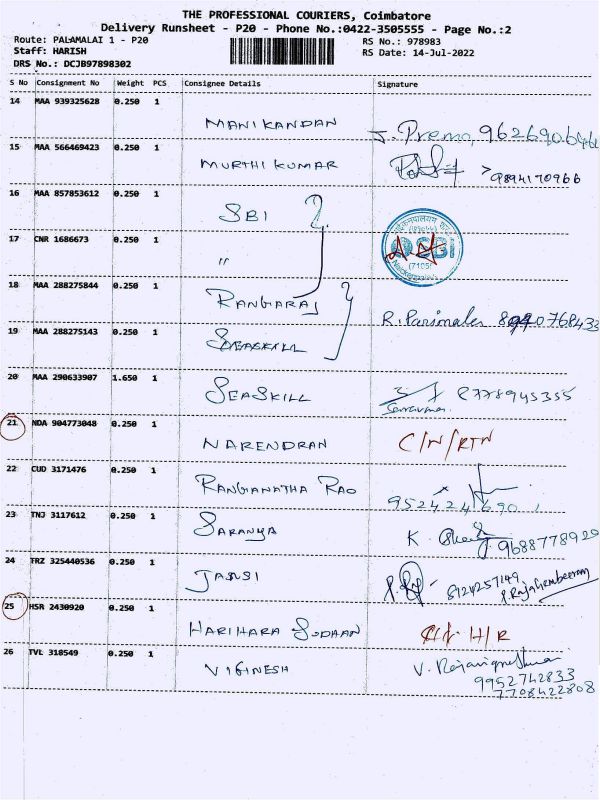 THE PROFESSIONAL COURIERS, Coimbatore
Delivery Runsheet - P20 - Phone No.:0422-3505555 - Page No.:2
Route: PALAMALAI 1 - P20 RS No.: 978983
Staff: HARISH RS Date: 14-Jul-2022
DRS No.: DCJB97898302
S No Consignment No Weight PCS Consignee Details Signature
14 MAA 939325628 0.250 1
MANIKANDAN J. Prema, 9626906461
15 MAA 566469423 0.250 1
MURTHI KUMAR 9894170966
16 MAA 857853612 0.250 1
SBI
SBI
17 CNR 1686673 0.250 1
"
18 MAA 288275844 0.250 1
RANGARAJ
R. Parimala
19 MAA 288275143 0.250 1
SEASKILL
20 MAA 290633907 1.650 1
SEASKILL 8778945355
Saravanan
21 NDA 904773048 0.250 1
NARENDRAN C/N/RTN
22 CUD 3171476 0.250 1
RANGANATHA RAO
23 TNJ 3117612 0.250 1
SARANYA K. 9688778920
24 TRZ 325440536 0.250 1
JANSI 8124257149
25 HSR 2430920 0.250 1
HARIHARA SUDAAN H/R
26 TVL 318549 0.250 1
VIGINESH V.
9952742833
7708422808